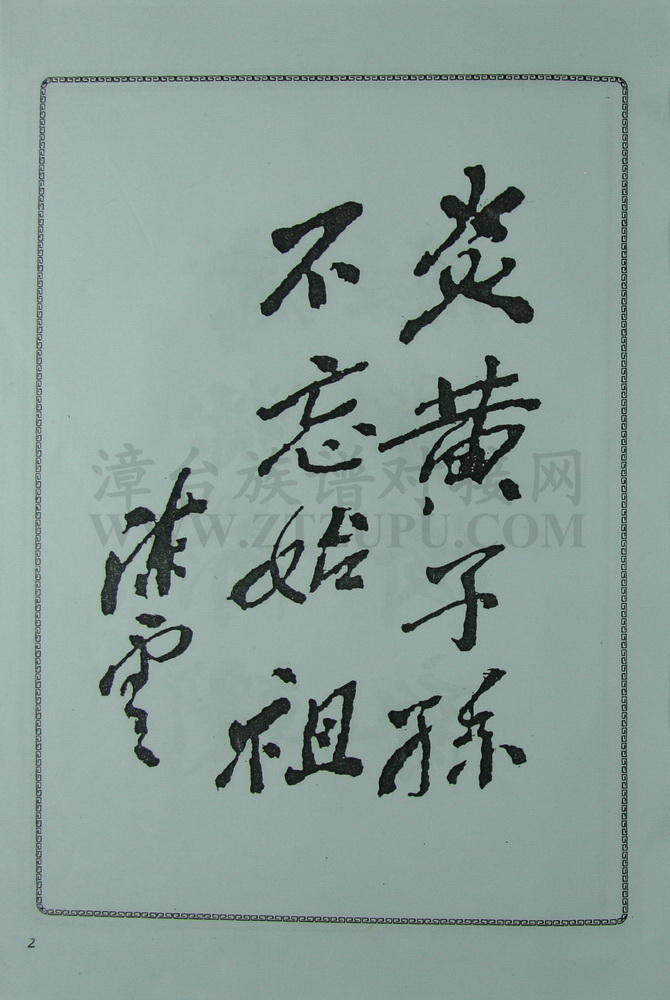 炎黄子孫
不忘始祖
陳雲
漳台族谱对接网
WWW.ZTZUPU.COM
2